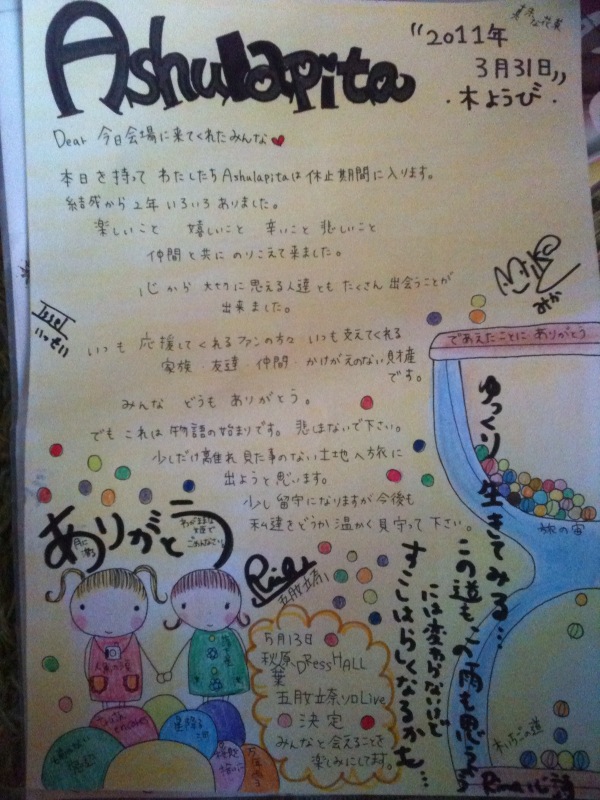 Ashulapita
"2011年
3月31日"
・木ようび・
Dear 今日会場に来てくれたみんな
本日を持って わたしたちAshulapitaは休止期間に入ります。
結成から2年 いろいろありました。
楽しいこと 嬉しいこと 辛いこと 悲しいこと
仲間と共に のりこえて来ました。
心から 大切に思える人達とも たくさん 出会うことが
出来ました。
いつも 応援してくれるファンの方々 いつも支えてくれる
家族・友達・仲間・かけがえのない財産
です。
みんな どうも ありがとう。
でも これは物語の始まりです。 悲しまないで下さい。
少しだけ離れ 見た事のない土地へ旅に
出ようと思います。
少し留守になりますが 今後も
私達をどうか 温かく見守って下さい。
Issei
いっせい
みか
であえたことに ありがとう
ゆっくり 生きてみる...
この道も この雨も思う
には変わらないけど
すこしはらしくなるかな...
旅の宙
ありがとう
わがままな
ごめんなさい
五肢立奈
5月13日
秋葉原DRESSHALL
五肢立奈ソロLive
決定
みんなと会えることを
楽しみにしてます。
encore
星降る